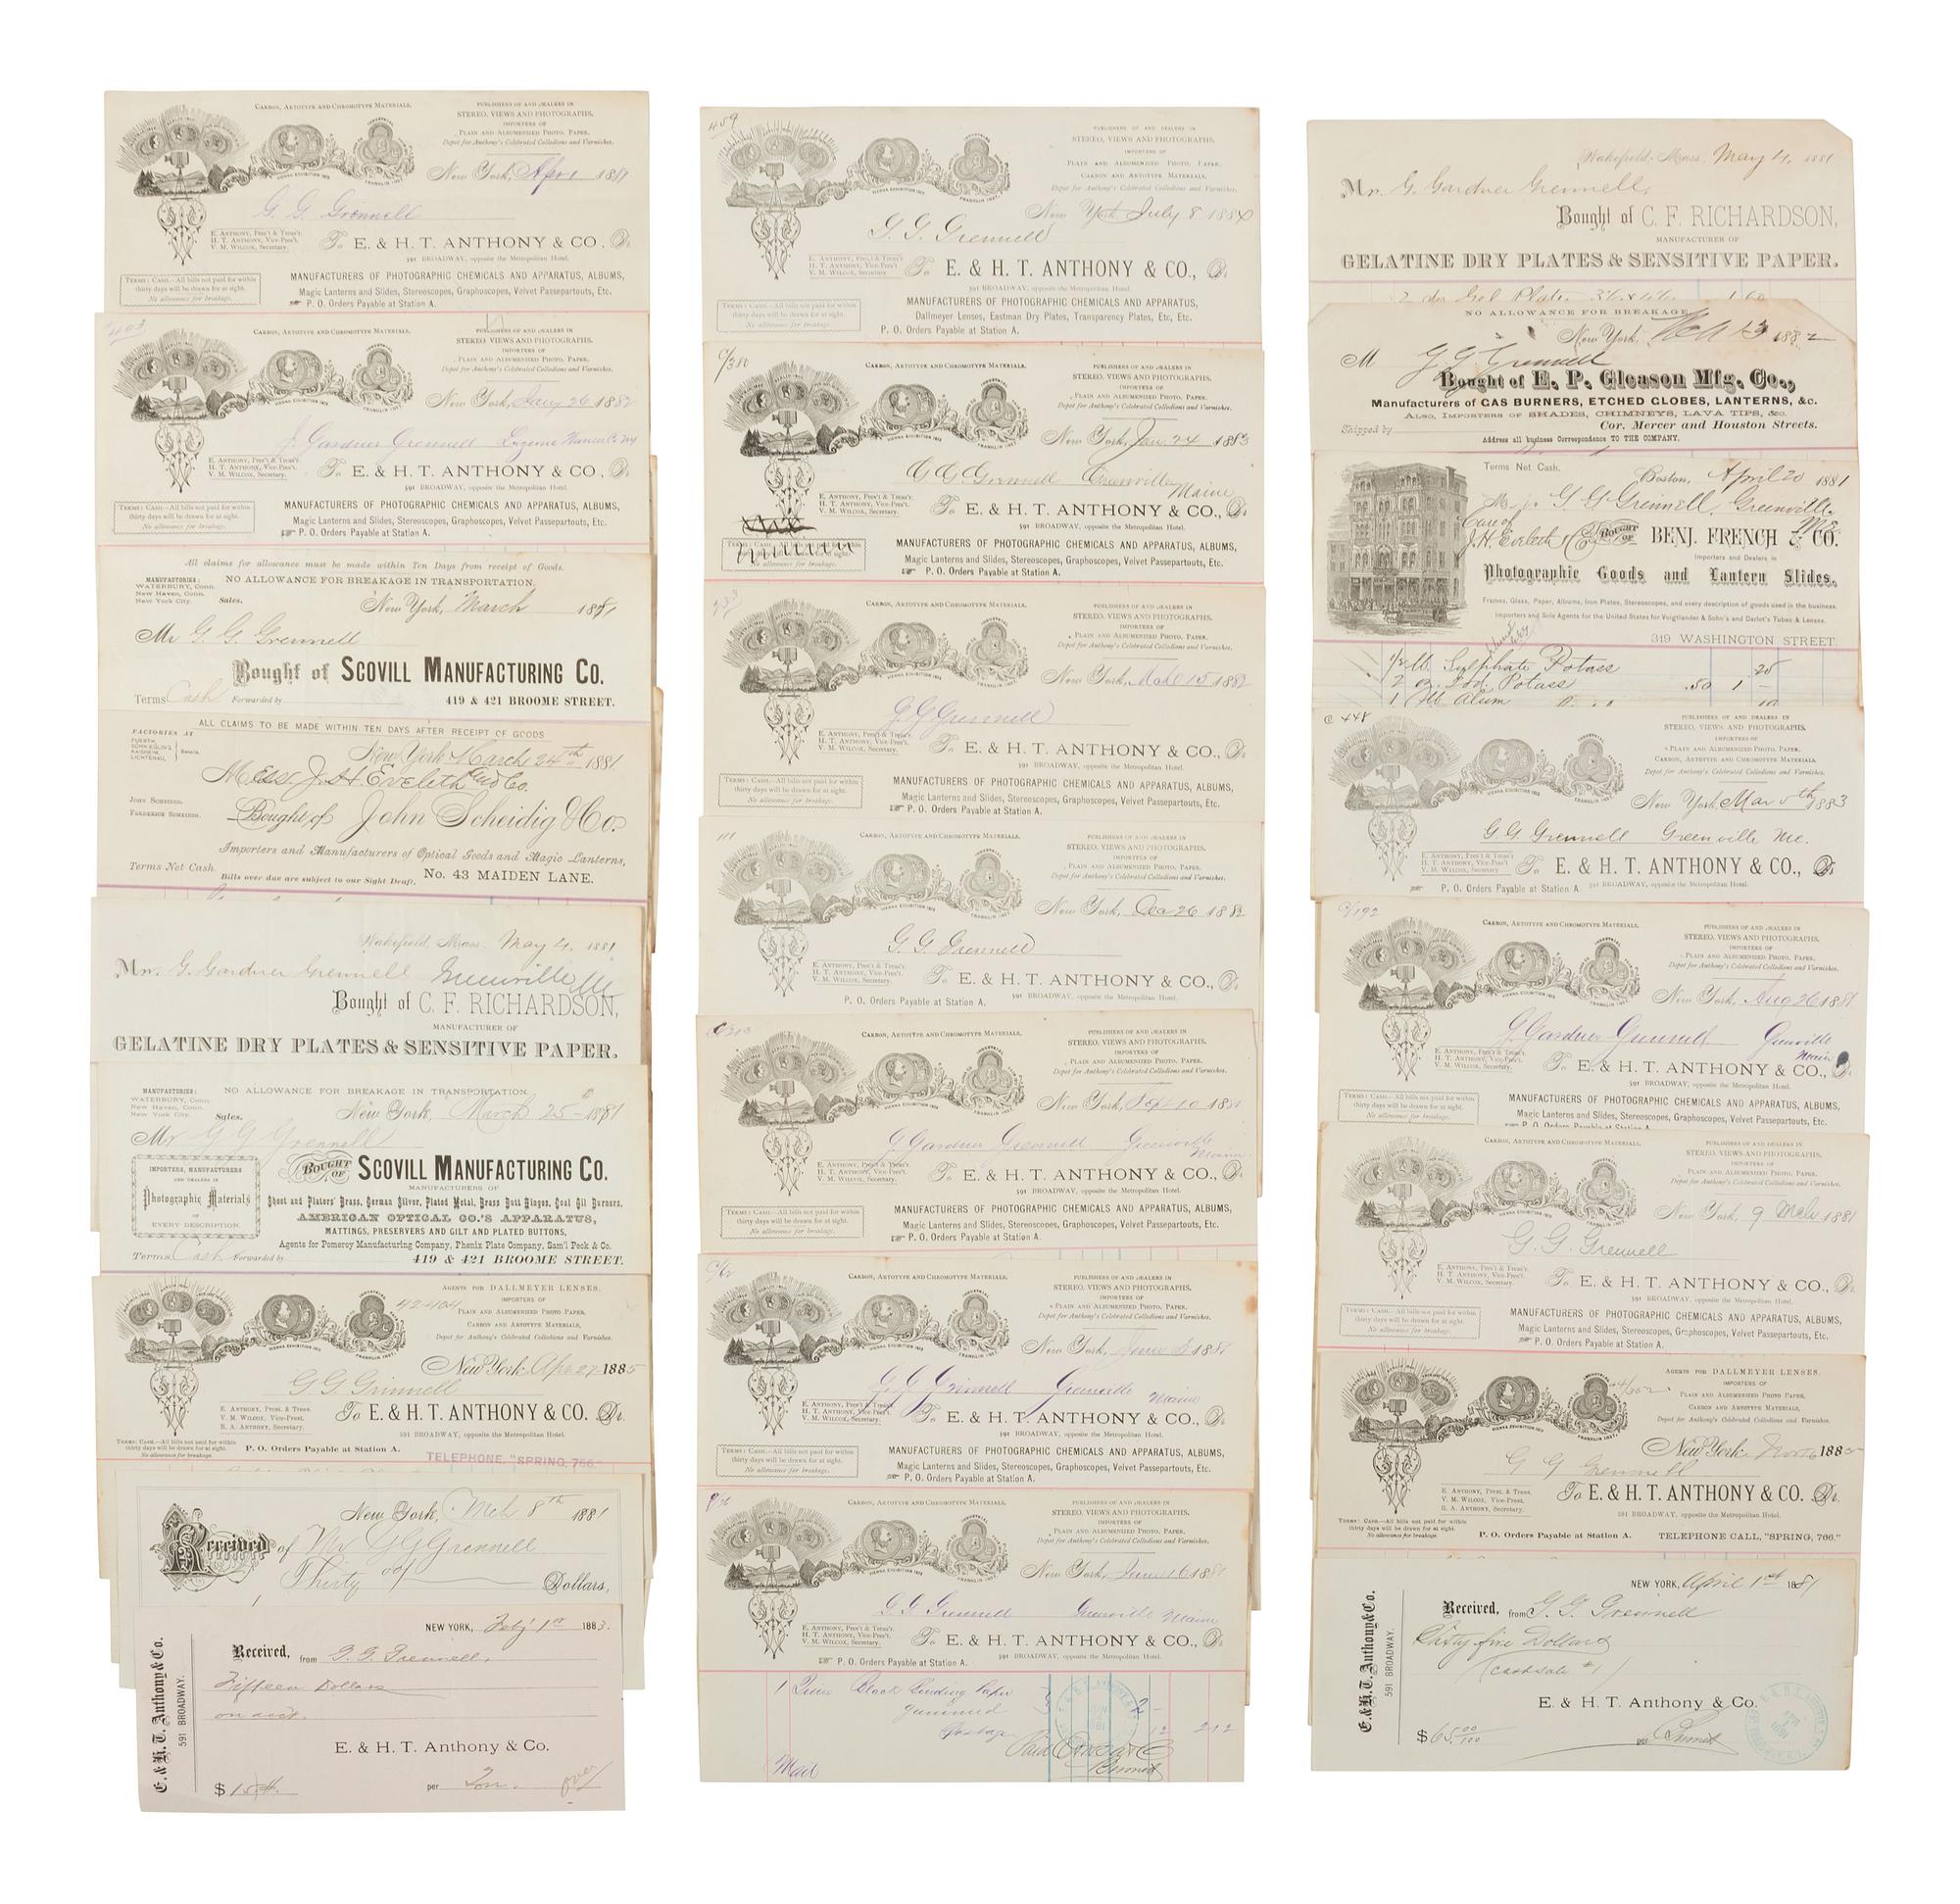 CARBON, ARTOTYPE AND CHROMOTYPE MATERIALS.
PUBLISHERS OF AND DEALERS IN
STEREO. VIEWS AND PHOTOGRAPHS.
IMPORTERS OF
PLAIN AND ALBUMENIZED PHOTO. PAPER.
Depot for Anthony's Celebrated Collodions and Varnishes.
VIENNA EXHIBITION 1873
FRANKLIN INST.
New York, Apr 1 1881
G. G. Grennell
E. ANTHONY, Pres't & Treas'r.
H. T. ANTHONY, Vice-Pres't.
V. M. WILCOX, Secretary.
To E. & H. T. ANTHONY & CO., Dr.
591 BROADWAY, opposite the Metropolitan Hotel.
TERMS: CASH.—All bills not paid for within
thirty days will be drawn for at sight.
No allowance for breakage.
MANUFACTURERS OF PHOTOGRAPHIC CHEMICALS AND APPARATUS, ALBUMS,
Magic Lanterns and Slides, Stereoscopes, Graphoscopes, Velvet Passepartouts, Etc.
P. O. Orders Payable at Station A.
CARBON, ARTOTYPE AND CHROMOTYPE MATERIALS.
PUBLISHERS OF AND DEALERS IN
STEREO. VIEWS AND PHOTOGRAPHS.
IMPORTERS OF
PLAIN AND ALBUMENIZED PHOTO. PAPER.
Depot for Anthony's Celebrated Collodions and Varnishes.
New York, Jany 26 1882
G. Gardner Grennell
E. ANTHONY, Pres't & Treas'r.
H. T. ANTHONY, Vice-Pres't.
V. M. WILCOX, Secretary.
To E. & H. T. ANTHONY & CO., Dr.
591 BROADWAY, opposite the Metropolitan Hotel.
TERMS: CASH.—All bills not paid for within
thirty days will be drawn for at sight.
No allowance for breakage.
MANUFACTURERS OF PHOTOGRAPHIC CHEMICALS AND APPARATUS, ALBUMS,
Magic Lanterns and Slides, Stereoscopes, Graphoscopes, Velvet Passepartouts, Etc.
P. O. Orders Payable at Station A.
All claims for allowance must be made within Ten Days from receipt of Goods.
MANUFACTORIES:
WATERBURY, Conn.
New Haven, Conn.
New York City.
NO ALLOWANCE FOR BREAKAGE IN TRANSPORTATION.
Sales.
New York, March 1881
Mr G. G. Grennell
Bought of SCOVILL MANUFACTURING CO.
Terms Cash Forwarded by
419 & 421 BROOME STREET.
ALL CLAIMS TO BE MADE WITHIN TEN DAYS AFTER RECEIPT OF GOODS
FACTORIES AT
New York March 24th 1881
Mess. J. H. Eveleth and Co.
JOHN SCHEIDIG.
FREDERICK SCHEIDIG.
Bought of John Scheidig & Co.
Importers and Manufacturers of Optical Goods and Magic Lanterns,
Terms Net Cash.
Bills over due are subject to our Sight Draft.
No. 43 MAIDEN LANE.
Wakefield, Mass. May 4, 1881
Mr. G. Gardner Grennell Greenville Me
Bought of C. F. RICHARDSON,
MANUFACTURER OF
GELATINE DRY PLATES & SENSITIVE PAPER.
MANUFACTORIES:
WATERBURY, Conn.
New Haven, Conn.
New York City.
NO ALLOWANCE FOR BREAKAGE IN TRANSPORTATION.
Sales.
New York, March 25th 1881
Mr G G Grennell
IMPORTERS, MANUFACTURERS
AND DEALERS IN
Photographic Materials
OF
EVERY DESCRIPTION.
BOUGHT OF SCOVILL MANUFACTURING CO.
MANUFACTURERS OF
Sheet and Platers' Brass, German Silver, Plated Metal, Brass Butt Hinges, Coal Oil Burners.
AMERICAN OPTICAL CO.'S APPARATUS,
MATTINGS, PRESERVERS AND GILT AND PLATED BUTTONS,
Agents for Pomeroy Manufacturing Company, Phenix Plate Company, Sam'l Peck & Co.
Terms Cash Forwarded by
419 & 421 BROOME STREET.
AGENTS FOR DALLMEYER LENSES.
IMPORTERS OF
PLAIN AND ALBUMENIZED PHOTO PAPER,
CARBON AND ARTOTYPE MATERIALS,
Depot for Anthony's Celebrated Collodions and Varnishes.
New York Apr 27 1885
G G Grinnell
E. ANTHONY, Prest. & Treas.
V. M. WILCOX, Vice-Prest.
R. A. ANTHONY, Secretary.
To E. & H. T. ANTHONY & CO. Dr.
591 BROADWAY, opposite the Metropolitan Hotel.
TERMS: CASH.—All bills not paid for within
thirty days will be drawn for at sight.
No allowance for breakage.
P. O. Orders Payable at Station A.
TELEPHONE, "SPRING, 766."
New York, Mch 8th 1881
Received of Mr G G Grennell
Thirty 00/ Dollars,
E. & H. T. Anthony & Co.
591 BROADWAY.
NEW YORK, Feb'y 1st 1883.
Received, from G. G. Grennell,
Fifteen Dollars
on acct.
E. & H. T. Anthony & Co.
$15
per
over
459
PUBLISHERS OF AND DEALERS IN
STEREO. VIEWS AND PHOTOGRAPHS,
IMPORTERS OF
PLAIN AND ALBUMENIZED PHOTO. PAPER,
CARBON AND ARTOTYPE MATERIALS,
Depot for Anthony's Celebrated Collodions and Varnishes.
New York July 8 1884
G. G. Grennell
E. ANTHONY, Pres't & Treas'r.
H. T. ANTHONY, Vice-Pres't.
V. M. WILCOX, Secretary
To E. & H. T. ANTHONY & CO., Dr.
591 BROADWAY, opposite the Metropolitan Hotel.
TERMS: CASH.—All bills not paid for within
thirty days will be drawn for at sight.
No allowance for breakage.
MANUFACTURERS OF PHOTOGRAPHIC CHEMICALS AND APPARATUS,
Dallmeyer Lenses, Eastman Dry Plates, Transparency Plates, Etc, Etc.
P. O. Orders Payable at Station A.
C/380
CARBON, ARTOTYPE AND CHROMOTYPE MATERIALS.
PUBLISHERS OF AND DEALERS IN
STEREO. VIEWS AND PHOTOGRAPHS.
IMPORTERS OF
PLAIN AND ALBUMENIZED PHOTO. PAPER.
Depot for Anthony's Celebrated Collodions and Varnishes.
New York, Jan. 24 1883
G G Grennell Greenville
Maine
E. ANTHONY, Pres't & Treas'r.
H. T. ANTHONY, Vice-Pres't.
V. M. WILCOX, Secretary.
To E. & H. T. ANTHONY & CO., Dr.
591 BROADWAY, opposite the Metropolitan Hotel.
MANUFACTURERS OF PHOTOGRAPHIC CHEMICALS AND APPARATUS, ALBUMS,
Magic Lanterns and Slides, Stereoscopes, Graphoscopes, Velvet Passepartouts, Etc.
P. O. Orders Payable at Station A.
CARBON, ARTOTYPE AND CHROMOTYPE MATERIALS.
PUBLISHERS OF AND DEALERS IN
STEREO. VIEWS AND PHOTOGRAPHS.
IMPORTERS OF
PLAIN AND ALBUMENIZED PHOTO. PAPER.
Depot for Anthony's Celebrated Collodions and Varnishes.
New York, Mch 15 1882
G G Grennell
E. ANTHONY, Pres't & Treas'r.
H. T. ANTHONY, Vice-Pres't.
V. M. WILCOX, Secretary.
To E. & H. T. ANTHONY & CO., Dr.
591 BROADWAY, opposite the Metropolitan Hotel.
TERMS: CASH.—All bills not paid for within
thirty days will be drawn for at sight.
No allowance for breakage.
MANUFACTURERS OF PHOTOGRAPHIC CHEMICALS AND APPARATUS, ALBUMS,
Magic Lanterns and Slides, Stereoscopes, Graphoscopes, Velvet Passepartouts, Etc.
P. O. Orders Payable at Station A.
111
CARBON, ARTOTYPE AND CHROMOTYPE MATERIALS.
PUBLISHERS OF AND DEALERS IN
STEREO. VIEWS AND PHOTOGRAPHS.
IMPORTERS OF
PLAIN AND ALBUMENIZED PHOTO. PAPER.
Depot for Anthony's Celebrated Collodions and Varnishes.
New York, 26 188
G. G. Grennell
E. ANTHONY, Pres't & Treas'r.
H. T. ANTHONY, Vice-Pres't.
V. M. WILCOX, Secretary.
To E. & H. T. ANTHONY & CO., Dr.
591 BROADWAY, opposite the Metropolitan Hotel.
P. O. Orders Payable at Station A.
CARBON, ARTOTYPE AND CHROMOTYPE MATERIALS.
PUBLISHERS OF AND DEALERS IN
STEREO. VIEWS AND PHOTOGRAPHS.
IMPORTERS OF
PLAIN AND ALBUMENIZED PHOTO. PAPER.
Depot for Anthony's Celebrated Collodions and Varnishes.
New York, Sept 10 1881
G Gardner Grennell Greenville
Maine
E. ANTHONY, Pres't & Treas'r.
H. T. ANTHONY, Vice-Pres't.
V. M. WILCOX, Secretary.
To E. & H. T. ANTHONY & CO., Dr.
591 BROADWAY, opposite the Metropolitan Hotel.
TERMS: CASH.—All bills not paid for within
thirty days will be drawn for at sight.
No allowance for breakage.
MANUFACTURERS OF PHOTOGRAPHIC CHEMICALS AND APPARATUS, ALBUMS,
Magic Lanterns and Slides, Stereoscopes, Graphoscopes, Velvet Passepartouts, Etc.
P. O. Orders Payable at Station A.
CARBON, ARTOTYPE AND CHROMOTYPE MATERIALS.
PUBLISHERS OF AND DEALERS IN
STEREO. VIEWS AND PHOTOGRAPHS.
IMPORTERS OF
PLAIN AND ALBUMENIZED PHOTO. PAPER.
Depot for Anthony's Celebrated Collodions and Varnishes.
New York, June 1881
G G Grinnell Greenville Maine
E. ANTHONY, Pres't & Treas'r.
H. T. ANTHONY, Vice-Pres't.
V. M. WILCOX, Secretary.
To E. & H. T. ANTHONY & CO., Dr.
591 BROADWAY, opposite the Metropolitan Hotel.
TERMS: CASH.—All bills not paid for within
thirty days will be drawn for at sight.
No allowance for breakage.
MANUFACTURERS OF PHOTOGRAPHIC CHEMICALS AND APPARATUS, ALBUMS,
Magic Lanterns and Slides, Stereoscopes, Graphoscopes, Velvet Passepartouts, Etc.
P. O. Orders Payable at Station A.
CARBON, ARTOTYPE AND CHROMOTYPE MATERIALS.
PUBLISHERS OF AND DEALERS IN
STEREO. VIEWS AND PHOTOGRAPHS.
IMPORTERS OF
PLAIN AND ALBUMENIZED PHOTO. PAPER.
Depot for Anthony's Celebrated Collodions and Varnishes.
New York, June 16 1881
G G Grennell Greenville Maine
E. ANTHONY, Pres't & Treas'r.
H. T. ANTHONY, Vice-Pres't.
V. M. WILCOX, Secretary.
To E. & H. T. ANTHONY & CO., Dr.
591 BROADWAY, opposite the Metropolitan Hotel.
P. O. Orders Payable at Station A.
Black Binding Paper
gummed 2 -
Postage 12 2 12
Paid
Mail
Wakefield, Mass. May 4, 1881
Mr. G. Gardner Grennell,
Bought of C. F. RICHARDSON,
MANUFACTURER OF
GELATINE DRY PLATES & SENSITIVE PAPER.
2 doz Gel Plates 1 60
NO ALLOWANCE FOR BREAKAGE
New York, 1882
M G G Grennell
Bought of E. P. Gleason Mfg. Co.,
Manufacturers of GAS BURNERS, ETCHED GLOBES, LANTERNS, &c.
ALSO, IMPORTERS OF SHADES, CHIMNEYS, LAVA TIPS, &c.
Shipped by
Cor. Mercer and Houston Streets.
Address all business Correspondence TO THE COMPANY.
Terms Net Cash.
Boston, April 20 1881
M G G Grennell, Greenville
Care of Me.
J. H. Eveleth & Co BOUGHT OF BENJ. FRENCH & CO.
Importers and Dealers in
Photographic Goods and Lantern Slides.
Frames, Glass, Paper, Albums, Iron Plates, Stereoscopes, and every description of goods used in the business.
Importers and Sole Agents for the United States for Voigtlander & Sohn's and Darlot's Tubes & Lenses.
319 WASHINGTON STREET.
1/2 lb Sulphate Potass 25
2 oz. Iod. Potass .50 1 -
1 lb Alum 10
C 448
PUBLISHERS OF AND DEALERS IN
STEREO. VIEWS AND PHOTOGRAPHS,
IMPORTERS OF
PLAIN AND ALBUMENIZED PHOTO. PAPER,
CARBON AND ARTOTYPE MATERIALS,
Depot for Anthony's Celebrated Collodions and Varnishes.
New York Mar 5th 1883
G G Grennell Greenville Me.
E. ANTHONY, Pres't & Treas'r.
H. T. ANTHONY, Vice-Pres't.
V. M. WILCOX, Secretary
To E. & H. T. ANTHONY & CO., Dr.
P. O. Orders Payable at Station A
591 BROADWAY, opposite the Metropolitan Hotel.
C/192
CARBON, ARTOTYPE AND CHROMOTYPE MATERIALS.
PUBLISHERS OF AND DEALERS IN
STEREO. VIEWS AND PHOTOGRAPHS.
IMPORTERS OF
PLAIN AND ALBUMENIZED PHOTO. PAPER.
Depot for Anthony's Celebrated Collodions and Varnishes.
New York, Aug 26 1881
G. Gardner Grennell Greenville
Maine
E. ANTHONY, Pres't & Treas'r.
H. T. ANTHONY, Vice-Pres't.
V. M. WILCOX, Secretary.
To E. & H. T. ANTHONY & CO., Dr.
591 BROADWAY, opposite the Metropolitan Hotel.
TERMS: CASH.—All bills not paid for within
thirty days will be drawn for at sight.
No allowance for breakage.
MANUFACTURERS OF PHOTOGRAPHIC CHEMICALS AND APPARATUS, ALBUMS,
Magic Lanterns and Slides, Stereoscopes, Graphoscopes, Velvet Passepartouts, Etc.
CARBON, ARTOTYPE AND CHROMOTYPE MATERIALS.
PUBLISHERS OF AND DEALERS IN
STEREO. VIEWS AND PHOTOGRAPHS.
IMPORTERS OF
PLAIN AND ALBUMENIZED PHOTO. PAPER.
Depot for Anthony's Celebrated Collodions and Varnishes.
New York, 9 Mch 1881
G. G. Grennell
E. ANTHONY, Pres't & Treas'r.
H. T. ANTHONY, Vice-Pres't.
V. M. WILCOX, Secretary.
To E. & H. T. ANTHONY & CO., Dr.
591 BROADWAY, opposite the Metropolitan Hotel.
TERMS: CASH.—All bills not paid for within
thirty days will be drawn for at sight.
No allowance for breakage.
MANUFACTURERS OF PHOTOGRAPHIC CHEMICALS AND APPARATUS, ALBUMS,
Magic Lanterns and Slides, Stereoscopes, Graphoscopes, Velvet Passepartouts, Etc.
P. O. Orders Payable at Station A.
AGENTS FOR DALLMEYER LENSES.
IMPORTERS OF
PLAIN AND ALBUMENIZED PHOTO PAPER,
CARBON AND ARTOTYPE MATERIALS,
Depot for Anthony's Celebrated Collodions and Varnishes.
New York 1885
G G Grennell
E. ANTHONY, Prest. & Treas.
V. M. WILCOX, Vice-Prest.
R. A. ANTHONY, Secretary.
To E. & H. T. ANTHONY & CO. Dr.
591 BROADWAY, opposite the Metropolitan Hotel.
TERMS: CASH.—All bills not paid for within
thirty days will be drawn for at sight.
No allowance for breakage.
P. O. Orders Payable at Station A.
TELEPHONE CALL, "SPRING, 766."
E. & H. T. Anthony & Co.
591 BROADWAY.
NEW YORK, April 1st 1881
Received, from G. G. Grennell
Sixty five Dollars
(cash sale #1)
E. & H. T. Anthony & Co.
$65.00/100